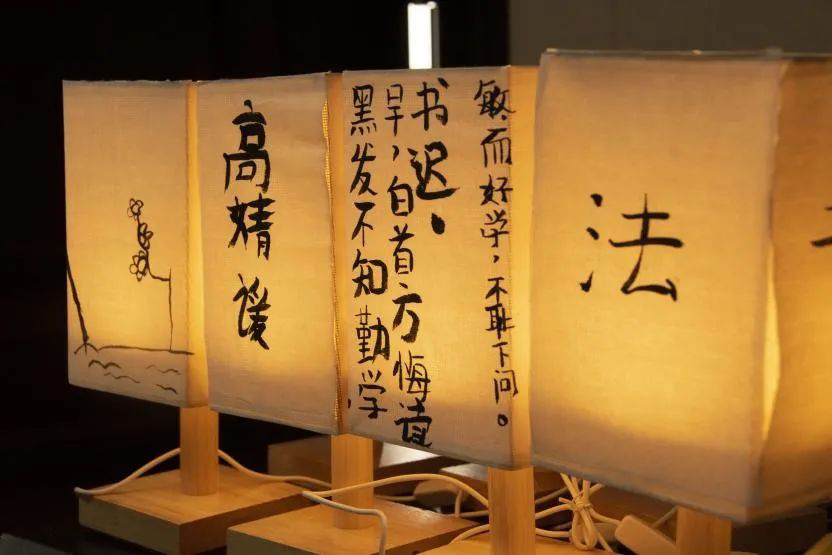 高
黑发不知勤学
早，白首方悔读
书迟。
敏而好学，不耻下问。
法